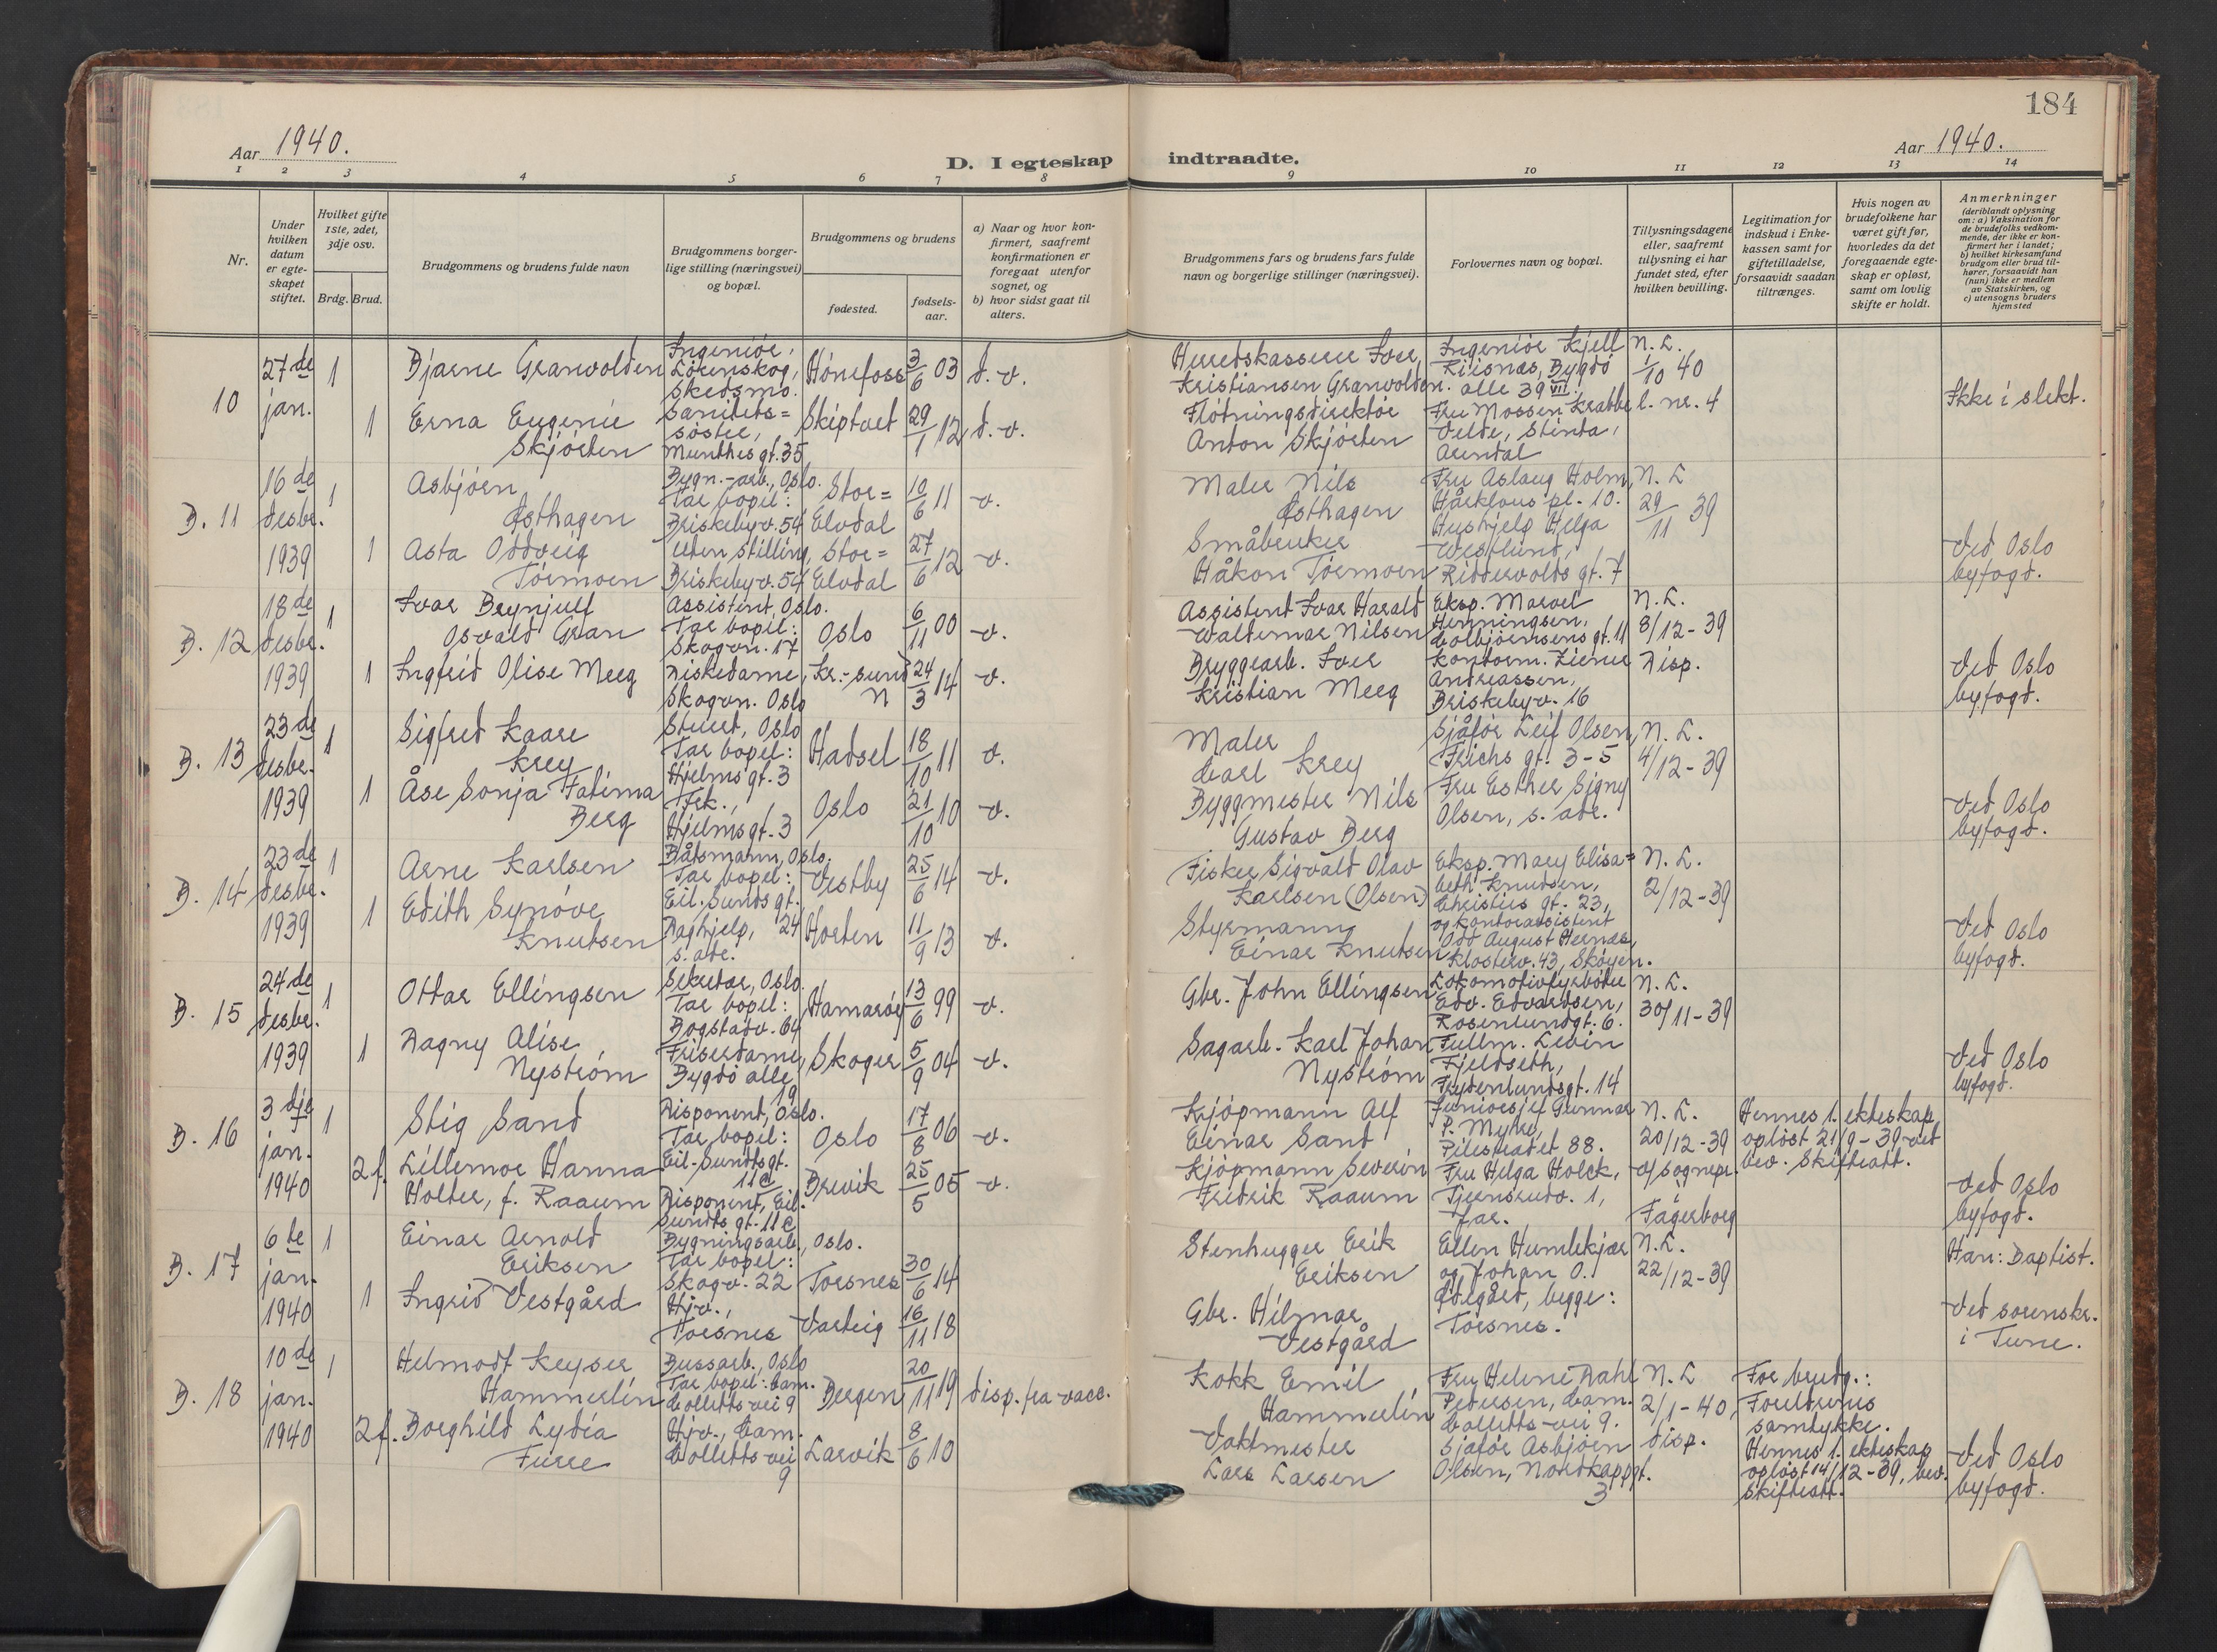 184
Aar 1940.
D. I egteskap indtraadte.
Aar 1940.
1 2 3 4 5 6 7 8 9 10 11 12 13 14
Nr.
Under hvilken datum er egteskapet stiftet.
Hvilket gifte 1ste, 2det, 3dje osv.
Brdg. Brud.
Brudgommens og brudens fulde navn
Brudgommens borgerlige stilling (næringsvei) og bopæl.
Brudgommens og brudens
fødested.
fødselsaar.
a) Naar og hvor konfirmert, saafremt konfirmationen er foregaat utenfor sognet, og
b) hvor sidst gaat til alters.
Brudgommens fars og brudens fars fulde navn og borgerlige stillinger (næringsvei).
Forlovernes navn og bopæl.
Tillysningsdagene eller, saafremt tillysning ei har fundet sted, efter hvilken bevilling.
Legitimation for indskud i Enkekassen samt for giftetilladelse, forsaavidt saadan tiltrænges.
Hvis nogen av brudefolkene har været gift før, hvorledes da det foregaaende egteskap er opløst, samt om lovlig skifte er holdt.
Anmerkninger
(deriblandt oplysning om: a) Vaksination for de brudefolks vedkommende, der ikke er konfirmert her i landet; b) hvilket kirkesamfund brudgom eller brud tilhører, forsaavidt han (hun) ikke er medlem av Statskirken, og c) utensogns bruders hjemsted
10
27de jan.
1
Bjarne Granvolden
Ingeniør, Lørenskog, Skedsmo.
Hønefoss
3/6 03
d. v.
Herredskasserer Iver Kristiansen Granvolden.
Ingeniør Kjell Riisnæs, Bygdø alle 39 VII.
N. L.
1/10 40
l. nr. 4
Ikke i slekt.
1
Erna Eugenie Skjørten
Sanitets=søster, Munthes gt. 35
Skiptvet
29/1 12
d. v.
Fløtningsdirektør Anton Skjørten
Fru Mossen Krabbe Velde, Stinta, Arendal
B. 11
16de desbr. 1939
1
Asbjørn Østhagen
Bygn.-arb., Oslo. Tar bopel: Briskebyv. 54
Stor=Elvdal
10/6 11
v.
Maler Nils Østhagen
Fru Aslaug Holm, Hårklous pl. 10.
N. L
29/11 39
1
Asta Oddveig Tørmoen
uten stilling, Briskebyv. 54
Stor=Elvdal
27/6 12
v.
Småbruker Håkon Tørmoen
Hushjelp Helga Westlund, Riddervolds gt. 7
Ved Oslo byfogd.
B. 12
18de desbr. 1939
1
Ivar Brynjulf Osvald Gran
Assistent, Oslo. Tar bopel: Skogvn. 17
Oslo
6/11 00
v.
Assistent Ivar Harald Waldemar Nilsen
Eksp. Marvel Henningsen, Colbjørnsens gt. 11
N. L.
8/12-39
Disp.
1
Ingfrid Olise Meeg
Diskedame, Skogvn. Oslo
Kr.-sund N
24/3 14
v.
Bryggearb. Iver Kristian Meeg
Kontorm. Zierner Andreassen, Briskebyv. 16
Ved Oslo byfogd.
B. 13
23de desbr. 1939
1
Sigfred Kaare Krey
Stuert, Oslo Tar bopel: Hjelms gt. 3
Hadsel
18/10 11
v.
Maler Carl Krey
Sjåfør Leif Olsen, Frichs gt. 3-5
N. L.
4/12-39
1
Åse Sonja Fatima Berg
Frk., Hjelms gt. 3
Oslo
21/10 10
v.
Byggmester Nils Gustav Berg
Fru Esther Signy Olsen, s. adr.
Ved Oslo byfogd.
B. 14
23de desbr. 1939
1
Arne Karlsen
Båtsmann, Oslo. Tar bopel: Eil. Sunds gt. 24
Vestby
25/6 14
v.
Fisker Sigvald Olav Karlsen (Olsen)
Eksp. Mary Elisa=beth Knudsen, Christies gt. 23,
N. L.
2/12-39
1
Edith Synøve Knutsen
Daghjelp, s. adr.
Horten
11/9 13
v.
Styrmann Einar Knutsen
og kontorassistent Odd August Hernæs, Klosterv. 43, Skøyen.
Ved Oslo byfogd.
B. 15
24de desbr. 1939
1
Ottar Ellingsen
Sekretær, Oslo. Tar bopel: Bogstadv. 64
Hamarøy
13/6 99
v.
Gbr. John Ellingsen
Lokomotivfyrbøter Edv. Edvardsen, Rosenlundgt. 6.
N. L.
30/11-39
1
Dagny Alise Nystrøm
Friserdame, Bygdø alle 19
Skoger
5/9 04
v.
Sagarb. Karl Johan Nystrøm
Fullm. Levin Fjeldseth, Frydenlundsgt. 14
Ved Oslo byfogd.
B. 16
3dje jan. 1940
1
Stig Sand
Disponent, Oslo. Tar bopel: Eil. Sundts gt. 11 c
Oslo
17/8 06
v.
Kjøpmann Alf Einar Sand
Juniorsjef Gunnar P. Myhre, Pilestredet 88.
N. L.
20/12-39
af sognepr. i Fagerborg
Hennes 1. ekteskap opløst 21/9-39 ved bev. Skifteatt.
2 f.
Lillemor Hanna Holter, f. Raaum
Disponent, Eil. Sundts gt. 11 c
Brevik
25/5 05
v.
Kjøpmann Severin Fredrik Raaum
Fru Helga Holck, Tjernsrudv. 1, Jar.
Ved Oslo byfogd.
B. 17
6te jan. 1940
1
Einar Arnold Eriksen
Bygningsarb., Oslo. Tar bopel: Skogv. 22
Torsnes
30/6 14
Stenhugger Erik Eriksen
Ellen Humlekjær og Johan O. Ødegård, begge: Torsnes.
N. L.
22/12-39
Han: Baptist.
1
Ingrid Vestgård
Hjv., Torsnes
Varteig
16/11 18
Gbr. Hilmar Vestgård
Ved sorenskr. i Tune.
B. 18
10de jan. 1940
1
Helmodt Keyser Hammerlin
Bussarb., Oslo Tar bopel: Cam. Colletts vei 9
Bergen
20/11 19
disp. fra vacc.
Kokk Emil Hammerlin
Fru Helene Dahl Pedersen, Cam. Colletts vei 9.
N. L
2/1-40
disp.
For brudg.: Foreldrenes samtykke.
2 f.
Borghild Lydia Furre
Hjv., Cam. Colletts vei 9
Larvik
8/6 10
Vaktmester Lars Larsen
Sjåfør Asbjørn Olsen, Nordkappgt. 3
Hennes 1. ekteskap opløst 14/12-39, bev. Skifteatt.
Ved Oslo byfogd.